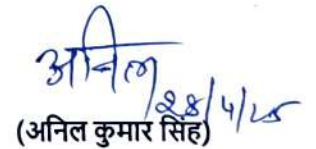 अनिल
28/4/25
(अनिल कुमार सिंह)